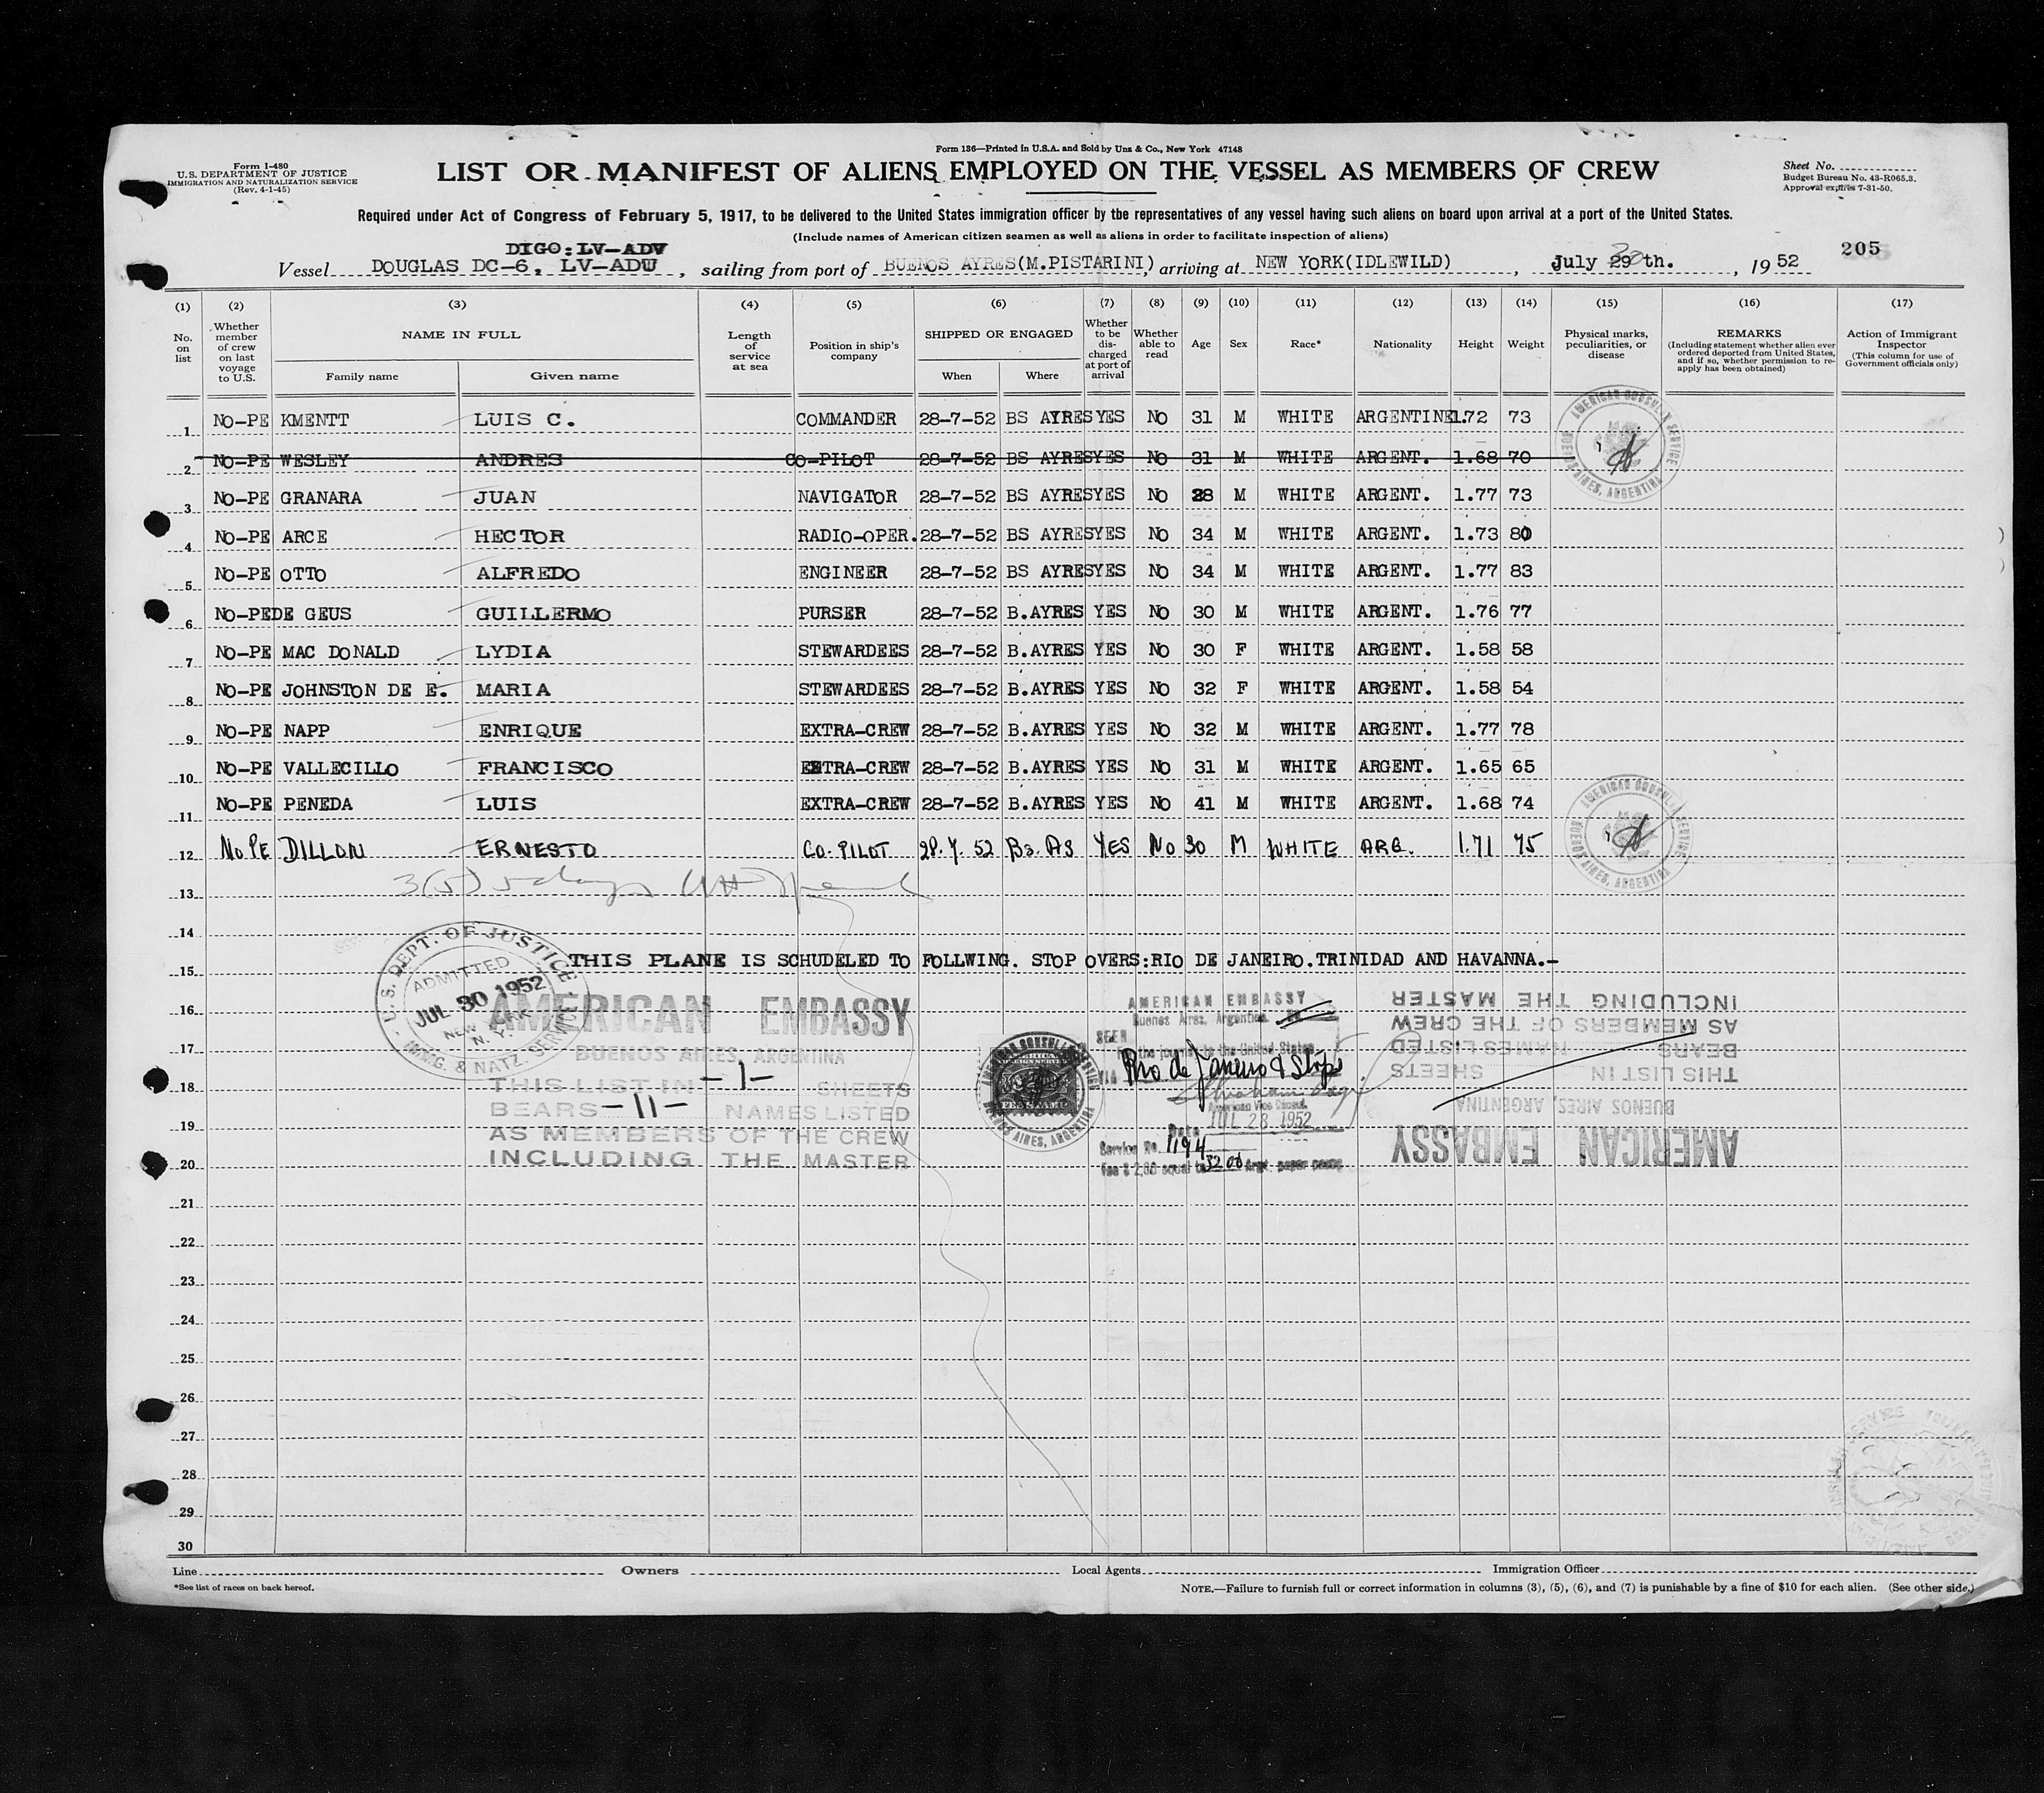 Form 136—Printed in U.S.A. and Sold by Unz & Co., New York 47148
Form I-480
U.S. DEPARTMENT OF JUSTICE
IMMIGRATION AND NATURALIZATION SERVICE
(Rev. 4-1-45)
LIST OR MANIFEST OF ALIENS EMPLOYED ON THE VESSEL AS MEMBERS OF CREW
Sheet No.
Budget Bureau No. 43-R065.3.
Approval expires 7-31-50.
Required under Act of Congress of February 5, 1917, to be delivered to the United States immigration officer by the representatives of any vessel having such aliens on board upon arrival at a port of the United States.
(Include names of American citizen seamen as well as aliens in order to facilitate inspection of aliens)
DIGO: LV-ADV
205
Vessel DOUGLAS DC-6, LV-ADU, sailing from port of BUENOS AYRES(M.PISTARINI) arriving at NEW YORK(IDLEWILD), July 29 30 th., 1952
(1) (2) (3) (4) (5) (6) (7) (8) (9) (10) (11) (12) (13) (14) (15) (16) (17)
No. on list
Whether member of crew on last voyage to U.S.
NAME IN FULL
Family name
Given name
Length of service at sea
Position in ship's company
SHIPPED OR ENGAGED
When
Where
Whether to be discharged at port of arrival
Whether able to read
Age
Sex
Race*
Nationality
Height
Weight
Physical marks, peculiarities, or disease
REMARKS
(Including statement whether alien ever ordered deported from United States, and if so, whether permission to re-apply has been obtained)
Action of Immigrant Inspector
(This column for use of Government officials only)
1 NO-PE KMENTT LUIS C. COMMANDER 28-7-52 BS AYRES YES NO 31 M WHITE ARGENTINE 1.72 73
2 NO-PE WESLEY ANDRES CO-PILOT 28-7-52 BS AYRES YES NO 31 M WHITE ARGENT. 1.68 70
3 NO-PE GRANARA JUAN NAVIGATOR 28-7-52 BS AYRES YES NO 28 M WHITE ARGENT. 1.77 73
4 NO-PE ARCE HECTOR RADIO-OPER. 28-7-52 BS AYRES YES NO 34 M WHITE ARGENT. 1.73 80
5 NO-PE OTTO ALFREDO ENGINEER 28-7-52 BS AYRES YES NO 34 M WHITE ARGENT. 1.77 83
6 NO-PE DE GEUS GUILLERMO PURSER 28-7-52 B.AYRES YES NO 30 M WHITE ARGENT. 1.76 77
7 NO-PE MAC DONALD LYDIA STEWARDEES 28-7-52 B.AYRES YES NO 30 F WHITE ARGENT. 1.58 58
8 NO-PE JOHNSTON DE E. MARIA STEWARDEES 28-7-52 B.AYRES YES NO 32 F WHITE ARGENT. 1.58 54
9 NO-PE NAPP ENRIQUE EXTRA-CREW 28-7-52 B.AYRES YES NO 32 M WHITE ARGENT. 1.77 78
10 NO-PE VALLECILLO FRANCISCO EXTRA-CREW 28-7-52 B.AYRES YES NO 31 M WHITE ARGENT. 1.65 65
11 NO-PE PENEDA LUIS EXTRA-CREW 28-7-52 B.AYRES YES NO 41 M WHITE ARGENT. 1.68 74
12 NO PE DILLON ERNESTO CO-PILOT 28.7.52 Bs. As YES NO 30 M WHITE ARG. 1.71 75
AMERICAN CONSULAR SERVICE BUENOS AIRES, ARGENTINA
AMERICAN CONSULAR SERVICE BUENOS AIRES, ARGENTINA
13
14
15 THIS PLANE IS SCHUDELED TO FOLLWING. STOP OVERS:RIO DE JANEIRO.TRINIDAD AND HAVANNA.-
U.S. DEPT. OF JUSTICE
ADMITTED
JUL 30 1952
NEW YORK
N. Y.
IMMIG. & NATZ. SERVICE
AMERICAN EMBASSY
BUENOS AIRES, ARGENTINA
THIS LIST IN -1- SHEETS
BEARS -11- NAMES LISTED
AS MEMBERS OF THE CREW
INCLUDING THE MASTER
AMERICAN CONSULAR SERVICE
BUENOS AIRES, ARGENTINA
AMERICAN EMBASSY
Buenos Aires, Argentina
SEEN
For the journey to the United States
VIA Rio de Janeiro & Stops
American Vice Consul
Date JUL 28 1952
Service No. 1194
Fee $ 2.00 equal to 32.00 Argt. paper pesos
AMERICAN EMBASSY
BUENOS AIRES, ARGENTINA
THIS LIST IN SHEETS
BEARS NAMES LISTED
AS MEMBERS OF THE CREW
INCLUDING THE MASTER
16
17
18
19
20
21
22
23
24
25
26
27
28
29
30
Line Owners Local Agents Immigration Officer
*See list of races on back hereof.
NOTE.—Failure to furnish full or correct information in columns (3), (5), (6), and (7) is punishable by a fine of $10 for each alien. (See other side.)